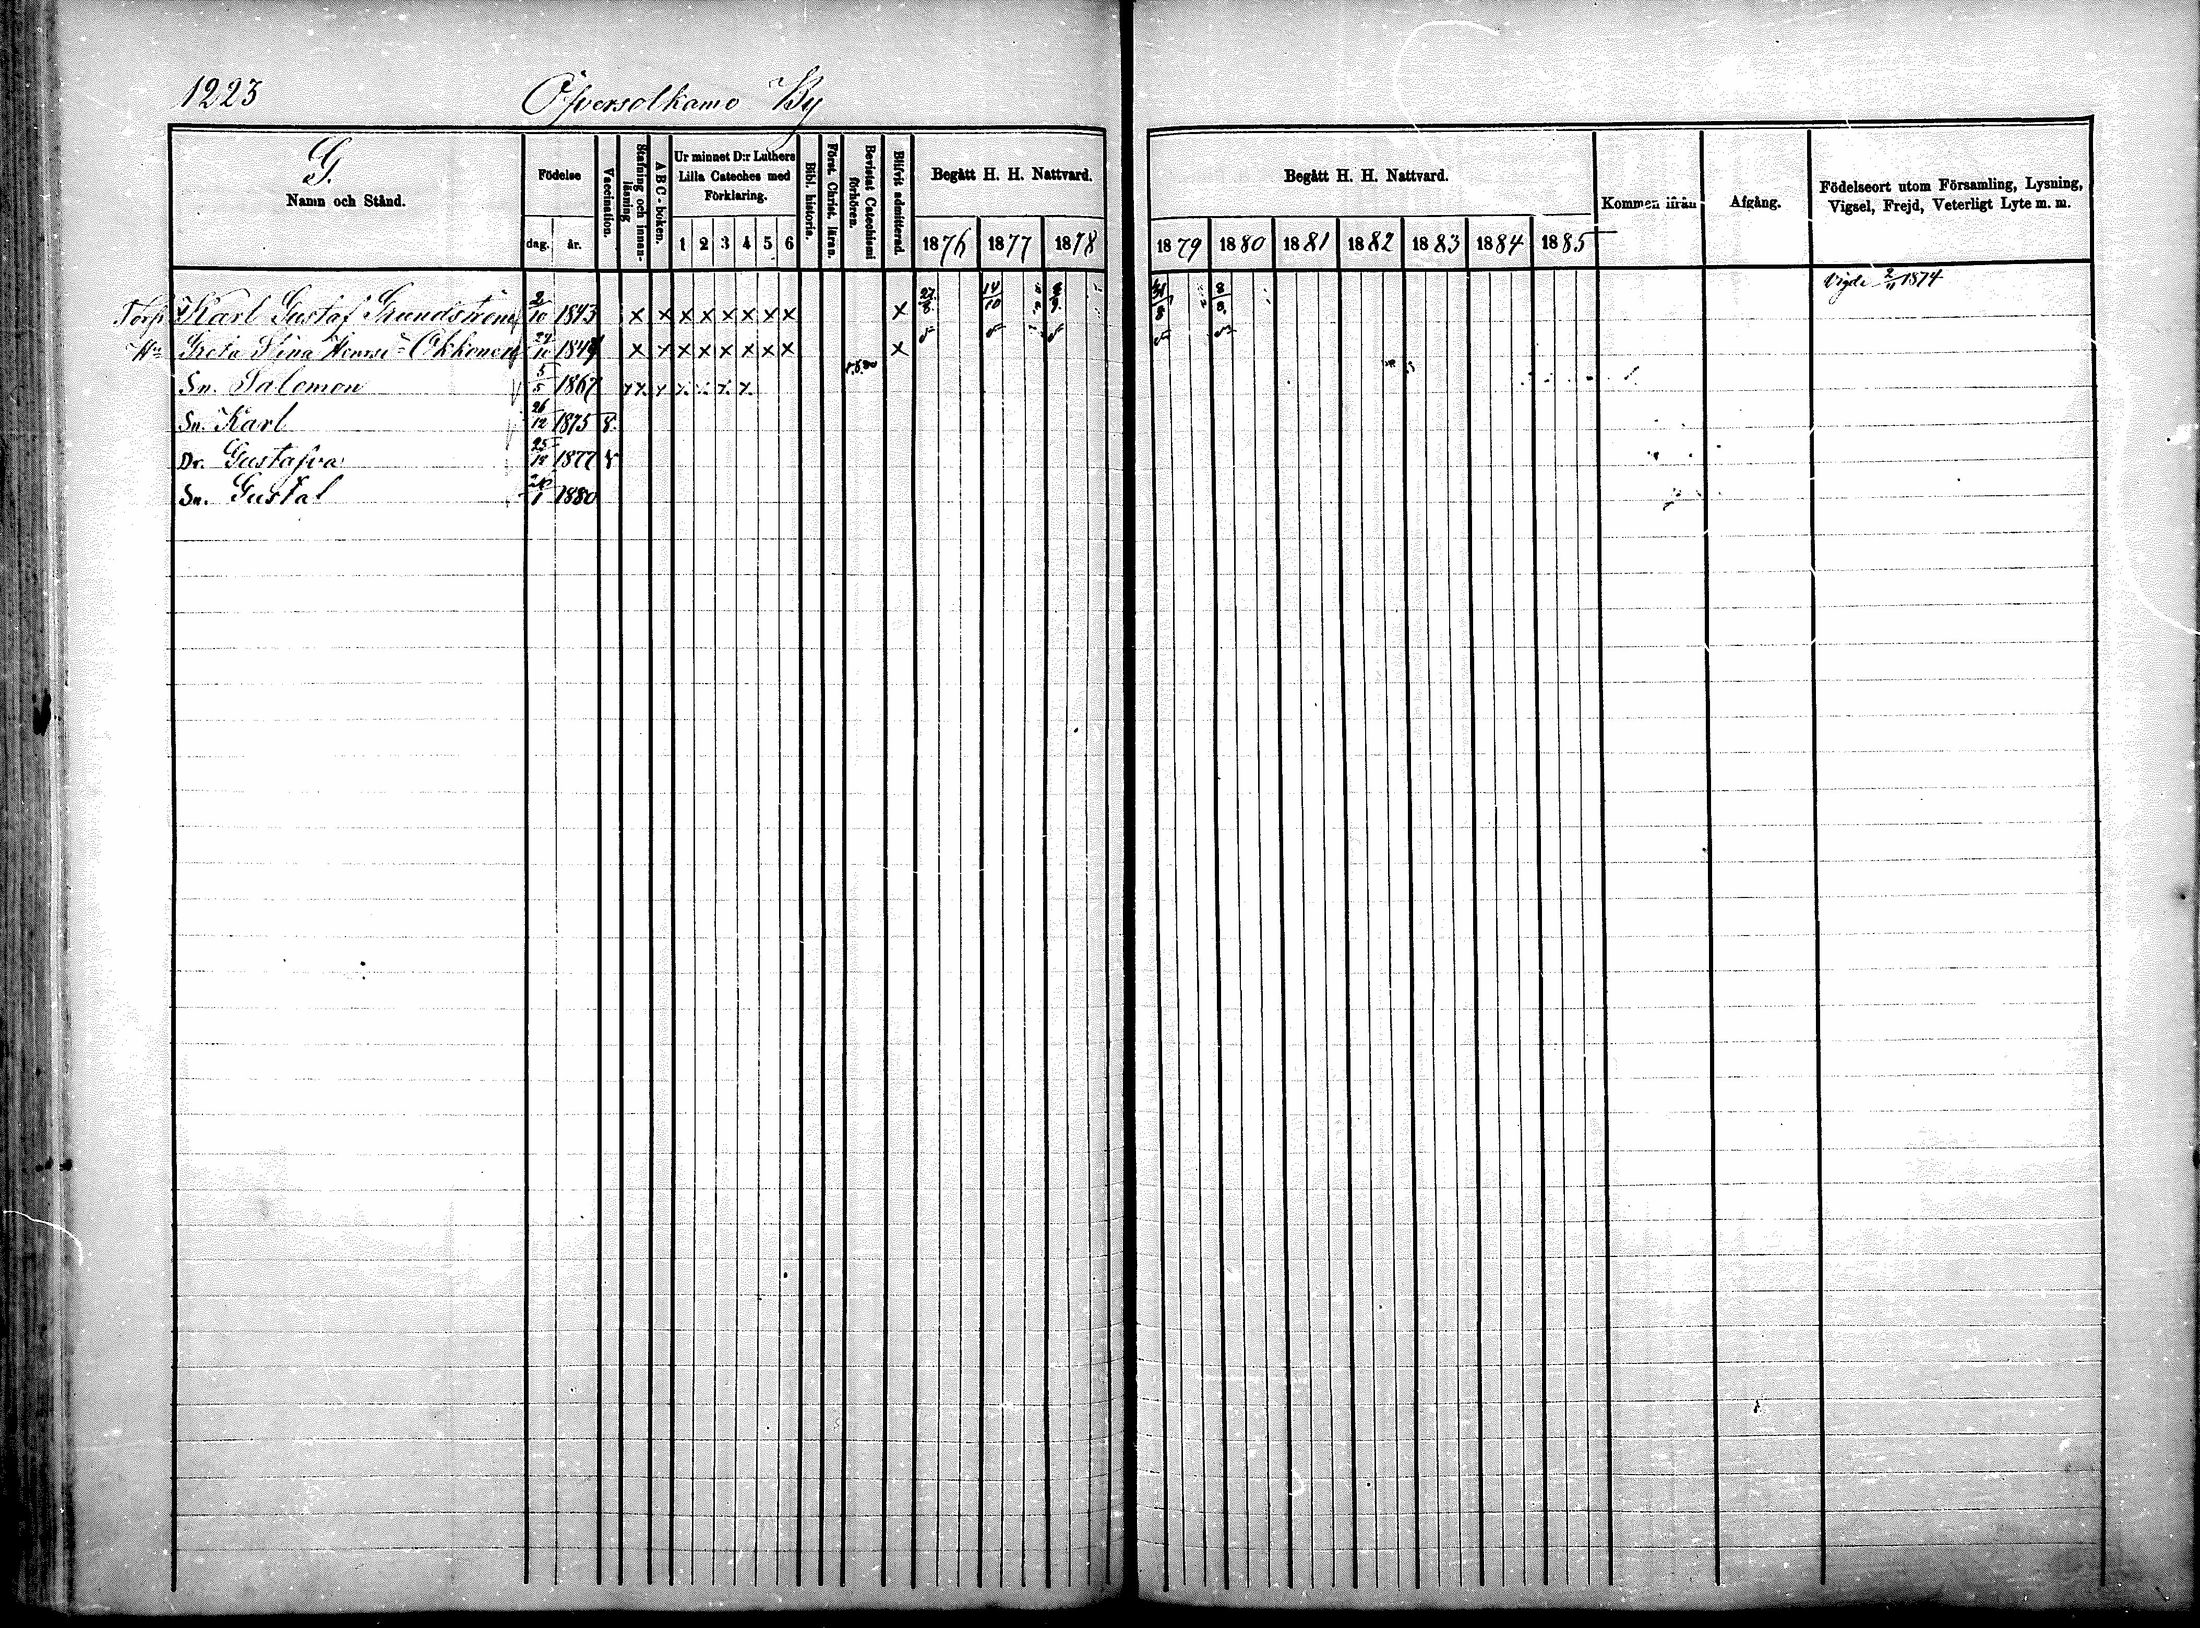 1223 Öfversolkamo By
G.
Namn och Stånd.
Födelse
dag. år.
Vaccination.
Stafning och innanläsning
A B C-boken.
Ur minnet D:r Luthers
Lilla Cateches med
Förklaring.
1 2 3 4 5 6
Bibl. historia.
Först. Christ. läran.
Bevistat Catechismi förhören.
Blifvit admitterad.
Begått H. H. Nattvard.
1876 1877 1878
Begått H. H. Nattvard.
1879 1880 1881 1882 1883 1884 1885
Kommen ifrån
Afgång.
Födelseort utom Församling, Lysning,
Vigsel, Frejd, Veterligt Lyte m. m.
Torp. Karl Gustaf Grundström 2/10 1843 x x x x x x x x x 27/8 14/10 31/8 8/8 Vigde 2/11 1874
Hu Greta Stina Okkonen 1849 x x x x x x x x x
Sn. Salomon 5/5 1867
Sn. Karl 26/12 1875 v.
Dr. Gustafva 25/12 1877 v
Sn. Gustaf 1880